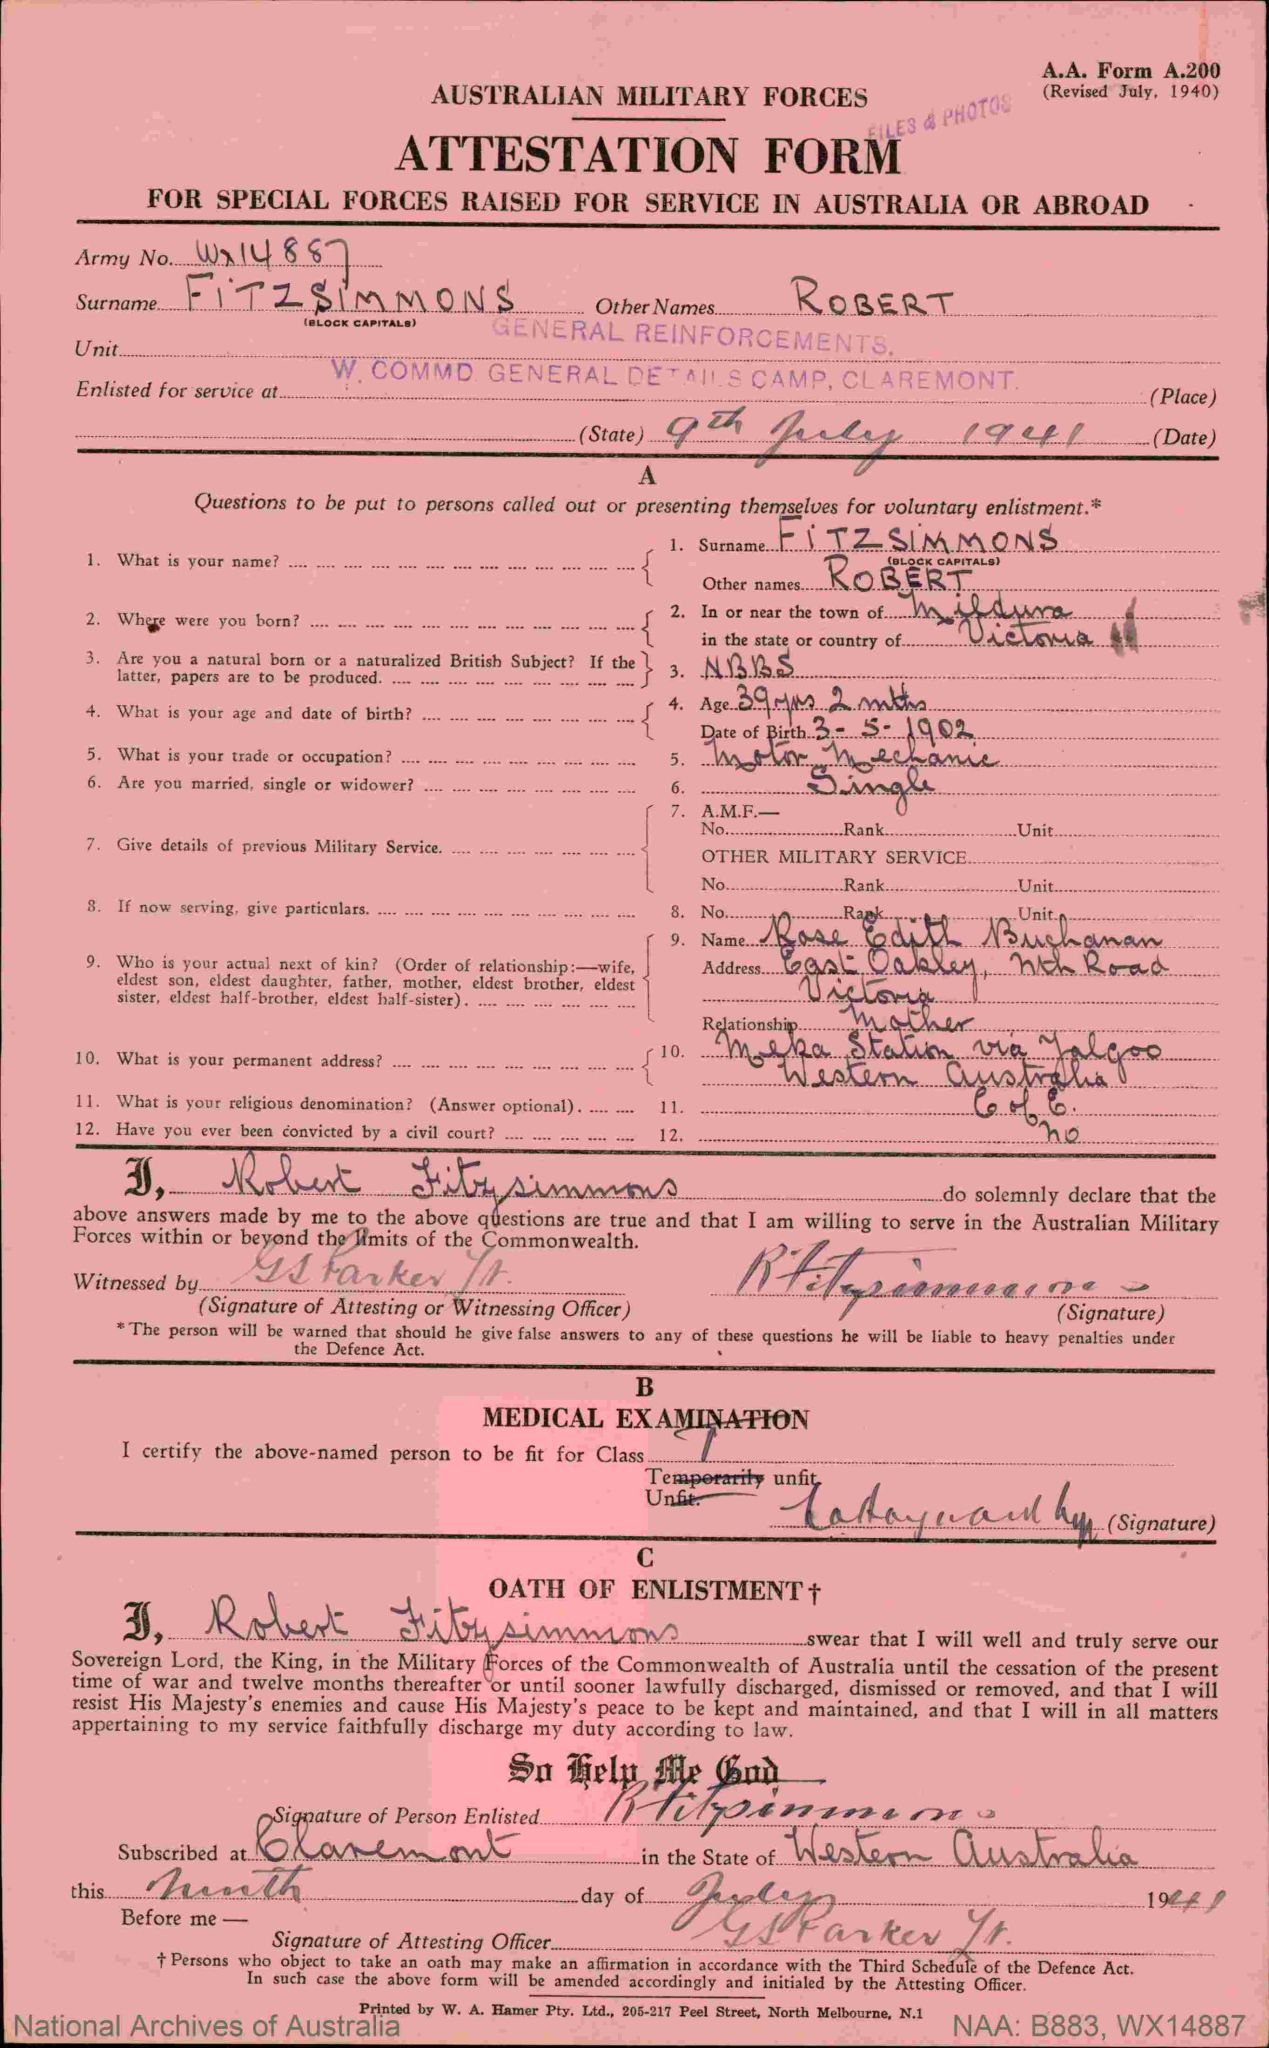 A.A. Form A.200
(Revised July, 1940)
AUSTRALIAN MILITARY FORCES
FILES & PHOTOS
ATTESTATION FORM
FOR SPECIAL FORCES RAISED FOR SERVICE IN AUSTRALIA OR ABROAD
Army No. WX14887
Surname FITZSIMMONS Other Names ROBERT
(BLOCK CAPITALS)
GENERAL REINFORCEMENTS.
Unit
W. COMMD. GENERAL DETAILS CAMP, CLAREMONT.
Enlisted for service at (Place)
(State) 9th July 1941 (Date)
A
Questions to be put to persons called out or presenting themselves for voluntary enlistment.*
1. What is your name? 1. Surname FITZSIMMONS
(BLOCK CAPITALS)
Other names ROBERT
2. Where were you born? 2. In or near the town of Mildura
in the state or country of Victoria
3. Are you a natural born or a naturalized British Subject? If the latter, papers are to be produced. 3. NBBS
4. What is your age and date of birth? 4. Age 39 yrs 2 mths
Date of Birth 3-5-1902
5. What is your trade or occupation? 5. Motor Mechanic
6. Are you married, single or widower? 6. Single
7. Give details of previous Military Service. 7. A.M.F.—
No. Rank Unit
OTHER MILITARY SERVICE
No. Rank Unit
8. If now serving, give particulars. 8. No. Rank Unit
9. Who is your actual next of kin? (Order of relationship:—wife, eldest son, eldest daughter, father, mother, eldest brother, eldest sister, eldest half-brother, eldest half-sister). 9. Name Rose Edith Buchanan
Address East Oakley, Nth Road
Victoria
Relationship Mother
10. What is your permanent address? 10. Meka Station via Yalgoo
Western Australia
11. What is your religious denomination? (Answer optional). 11. C of E.
12. Have you ever been convicted by a civil court? 12. No
I, Robert Fitzsimmons do solemnly declare that the
above answers made by me to the above questions are true and that I am willing to serve in the Australian Military
Forces within or beyond the limits of the Commonwealth.
Witnessed by GS Parker Lt. R Fitzsimmons
(Signature of Attesting or Witnessing Officer) (Signature)
*The person will be warned that should he give false answers to any of these questions he will be liable to heavy penalties under
the Defence Act.
B
MEDICAL EXAMINATION
I certify the above-named person to be fit for Class 1
Temporarily unfit.
Unfit.
(Signature)
C
OATH OF ENLISTMENT†
I, Robert Fitzsimmons swear that I will well and truly serve our
Sovereign Lord, the King, in the Military Forces of the Commonwealth of Australia until the cessation of the present
time of war and twelve months thereafter or until sooner lawfully discharged, dismissed or removed, and that I will
resist His Majesty's enemies and cause His Majesty's peace to be kept and maintained, and that I will in all matters
appertaining to my service faithfully discharge my duty according to law.
So Help Me God
Signature of Person Enlisted R Fitzsimmons
Subscribed at Claremont in the State of Western Australia
this Ninth day of July 1941
Before me —
Signature of Attesting Officer GS Parker Lt.
†Persons who object to take an oath may make an affirmation in accordance with the Third Schedule of the Defence Act.
In such case the above form will be amended accordingly and initialed by the Attesting Officer.
Printed by W. A. Hamer Pty. Ltd., 205-217 Peel Street, North Melbourne, N.1
National Archives of Australia NAA: B883, WX14887